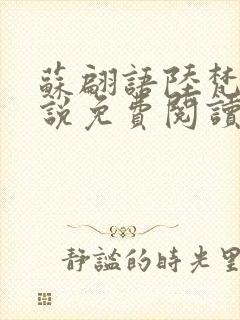 蘇翩語陸梵
說免費閱讀
靜謐的時光里